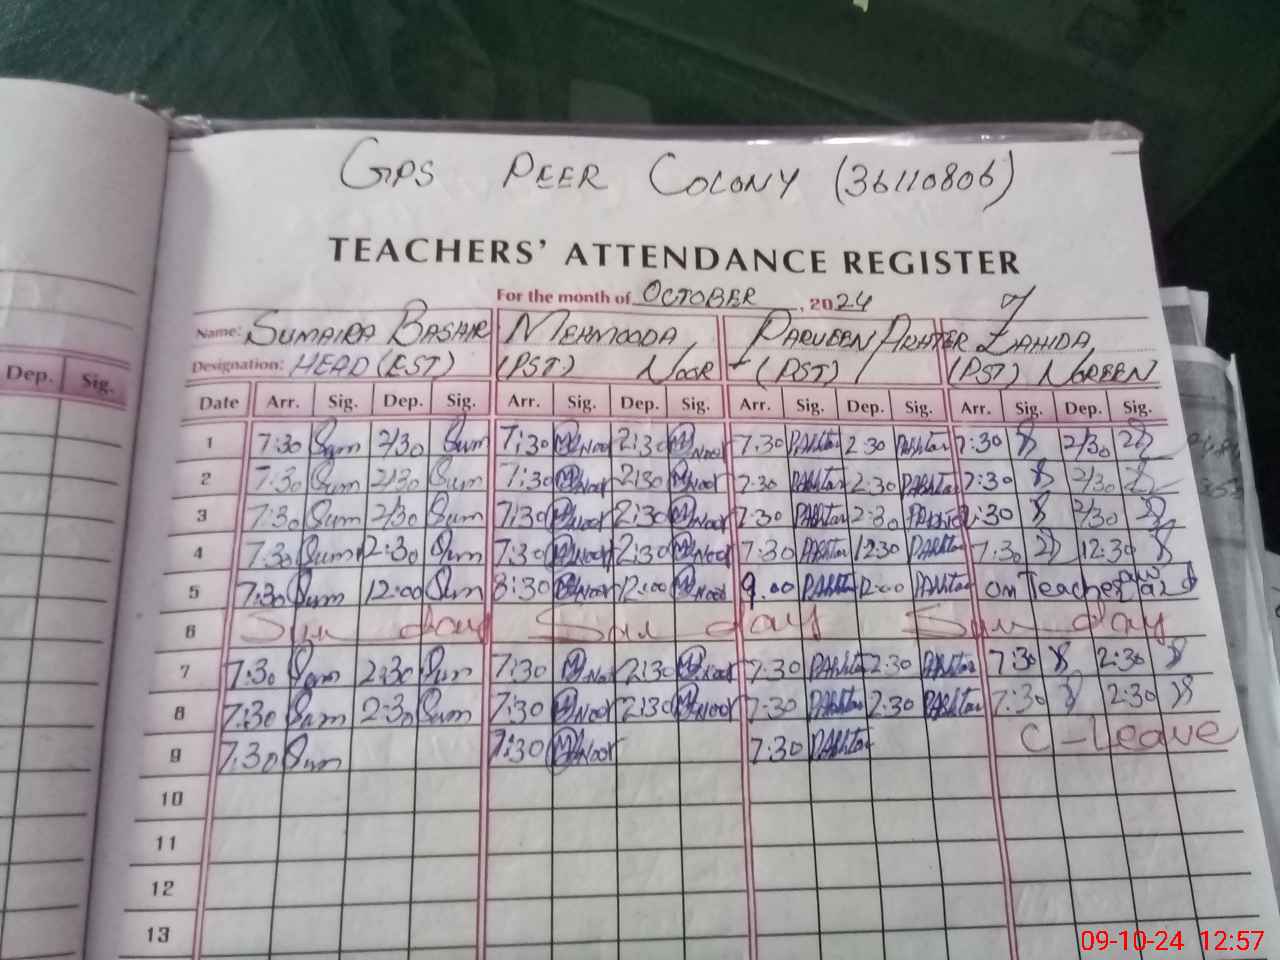 GPS PEER COLONY (36110806)
TEACHERS' ATTENDANCE REGISTER
For the month of OCTOBER, 2024
Name: SUMAIRA BASHIR MEHMOODA PARVEEN AKHTER ZAHIDA
Designation: HEAD (EST) (PST) NOOR (PST) (PST) NOREEN
Dep. Sig.
Date Arr. Sig. Dep. Sig. Arr. Sig. Dep. Sig. Arr. Sig. Dep. Sig. Arr. Sig. Dep. Sig.
1 7:30 Sum 2/30 Sum 7:30 M Noor 2:30 M Noor 7:30 PAkhtar 2:30 PAkhtar 7:30 2/30
2 7:30 Sum 2/30 Sum 7:30 M Noor 2:30 M Noor 7:30 PAkhtar 2:30 PAkhtar 7:30 2/30
3 7:30 Sum 2/30 Sum 7:30 M Noor 2:30 M Noor 7:30 PAkhtar 2:30 PAkhtar 7:30 2/30
4 7:30 Sum 12:30 Sum 7:30 M Noor 2:30 M Noor 7:30 PAkhtar 12:30 PAkhtar 7:30 12:30
5 7:30 Sum 12:00 Sum 8:30 M Noor 12:00 M Noor 9.00 PAkhtar 12:00 PAkhtar on Teacher
6 Sun day Sun day Sun day
7 7:30 Sum 2:30 Sum 7:30 M Noor 2:30 M Noor 7:30 PAkhtar 2:30 PAkhtar 7:30 2:30
8 7:30 Sum 2:30 Sum 7:30 M Noor 2:30 M Noor 7:30 PAkhtar 2:30 PAkhtar 7:30 2:30
9 7:30 Sum 7:30 M Noor 7:30 PAkhtar C-Leave
10
11
12
13
09-10-24 12:57